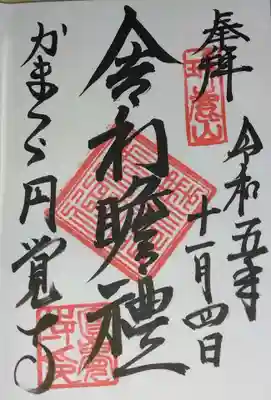 奉拝
令和五年
十一月四日
舎利瞻禮
かまくら円覚寺